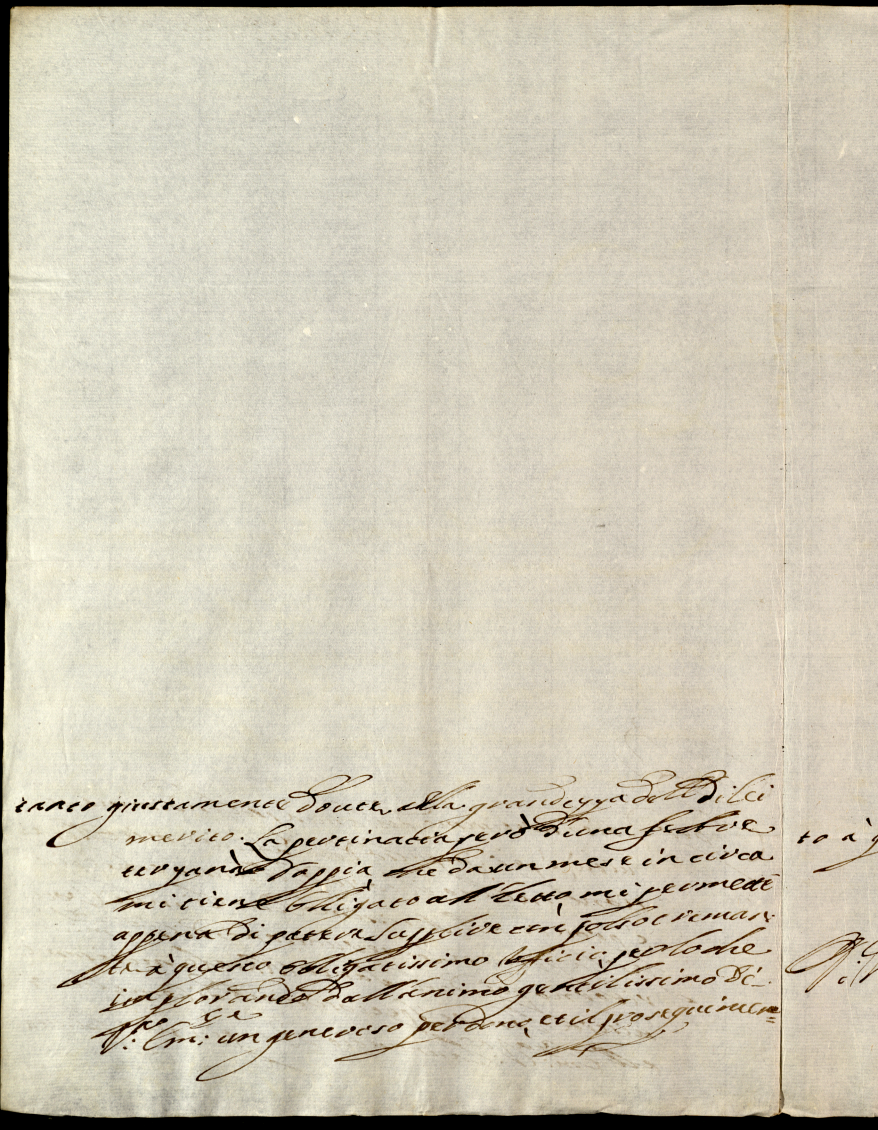 tanto giustamente dovute alla grandezza dell di lei
merito. La pertinacia però d'una febre
terzana doppia, che da un mese in circa
mi tiene obligato all letto mi permette
appena di poter supplire con polso treman:
te à questo obligatissimo officio, per lo che
implorando dall'animo gentilissimo di
V: Em: un generoso perdono, et il proseguimen=
to à